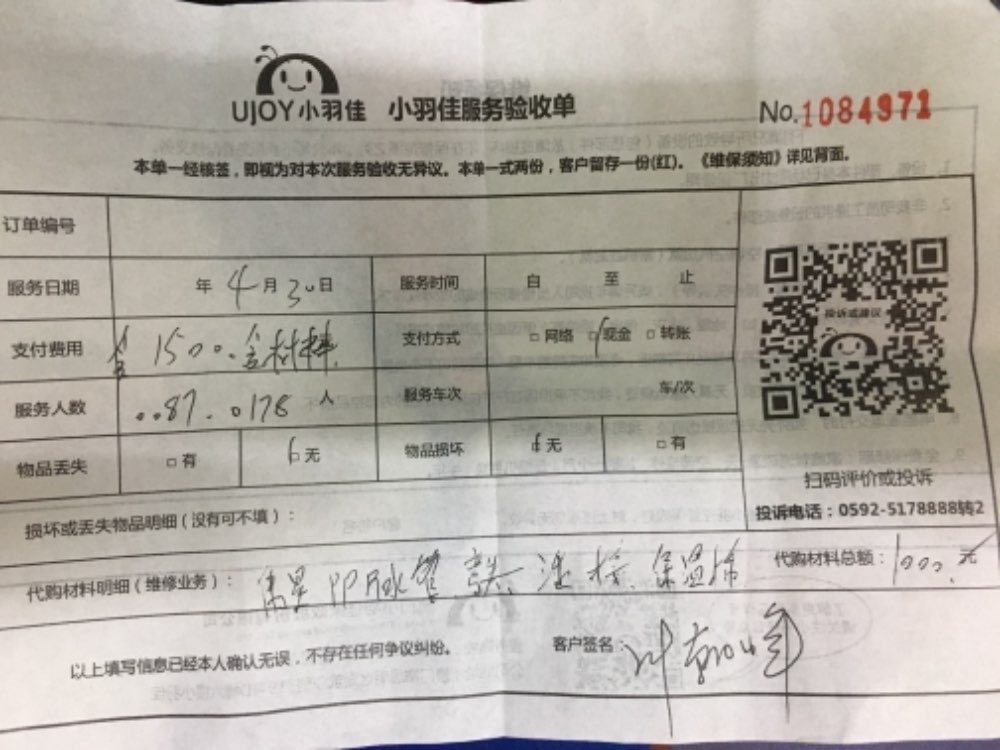 UJOY小羽佳 小羽佳服务验收单 No.1084971
本单一经核签，即视为对本次服务验收无异议。本单一式两份，客户留存一份(红)。《维保须知》详见背面。
订单编号
服务日期 年 4月30日 服务时间 自 至 止
支付费用 1500. 含材料 支付方式 □网络 现金 □转账
服务人数 0087.0178 人 服务车次 车/次
物品丢失 □有 无 物品损坏 无 □有
投诉或建议
扫码评价或投诉
投诉电话：0592-5178888转2
损坏或丢失物品明细（没有可不填）：
代购材料明细（维修业务）： PPR水管 保温 代购材料总额：1000.元
以上填写信息已经本人确认无误，不存在任何争议纠纷。 客户签名：